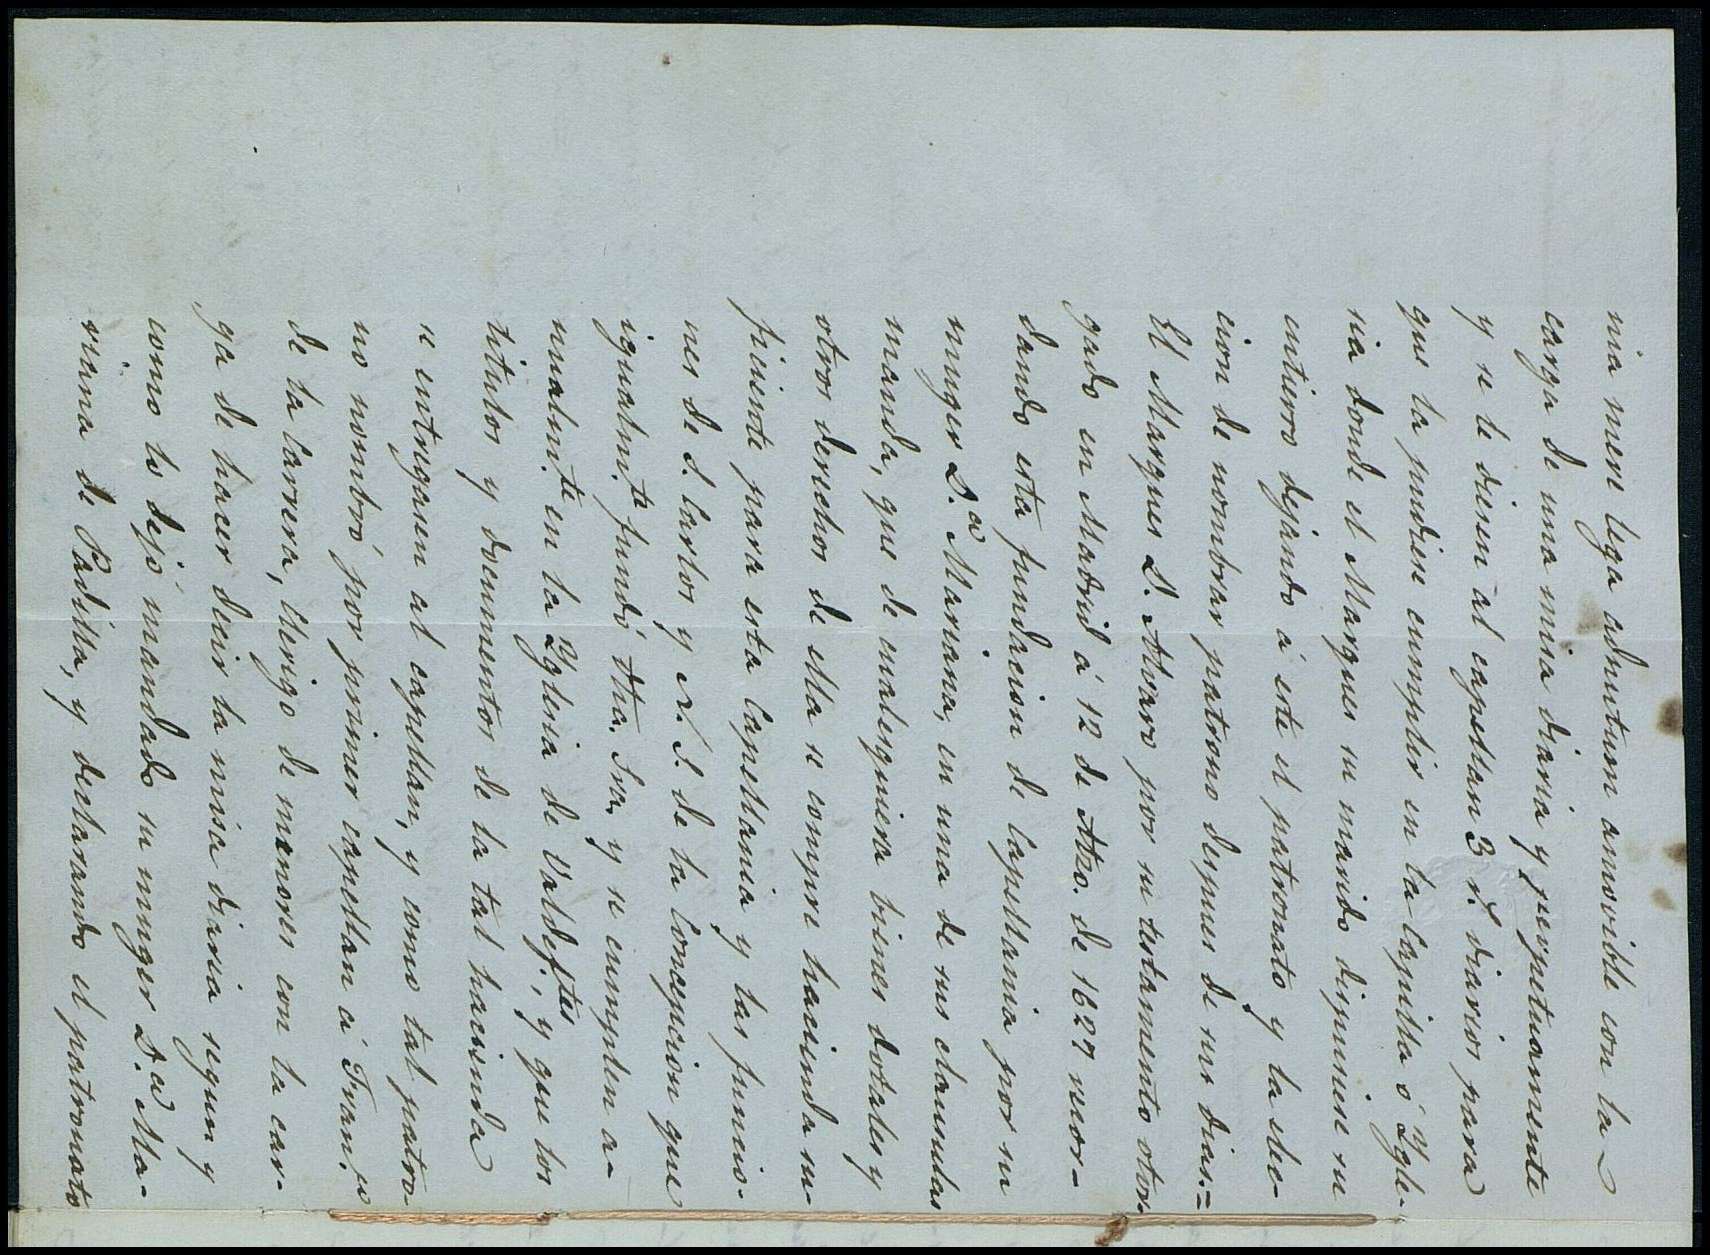 nia mere lega adnutum amovible con la
carga de una misa diaria y perpetuamente
y se le diesen al capellan 3 r.s diarios para
que la pudiese cumplir en la Capilla ó Ygle-
sia donde el Marques su marido dispusiese su
entierro dejando á este el patronato y la elec-
cion de nombrar patrono despues de sus dias.=
El Marques D. Alvaro por su testamento otor-
gado en Madrid á 12 de Mzo. de 1627 recor-
dando esta fundacion de Capellania por su
muger D.a Mariana, en una de sus clausulas
manda, que de cualesquiera bienes dotales y
otros derechos de ella se compre hacienda su-
ficiente para esta Capellania y las funcio-
nes de S. Carlos y N. S. de la Concepcion que
igualm.te fundó dha. Sra. y se cumplen a-
nualm.te en la Yglesia de Valdef.tes, y que los
titulos y documentos de la tal hacienda
se entreguen al capellan, y como tal patro-
no nombró por primer capellan á Fran.co
de la Carrera, Clerigo de menores con la car-
ga de hacer decir la misa diaria segun y
como lo dejó mandado su muger D.a Ma-
riana de Padilla, y declarando el patronato